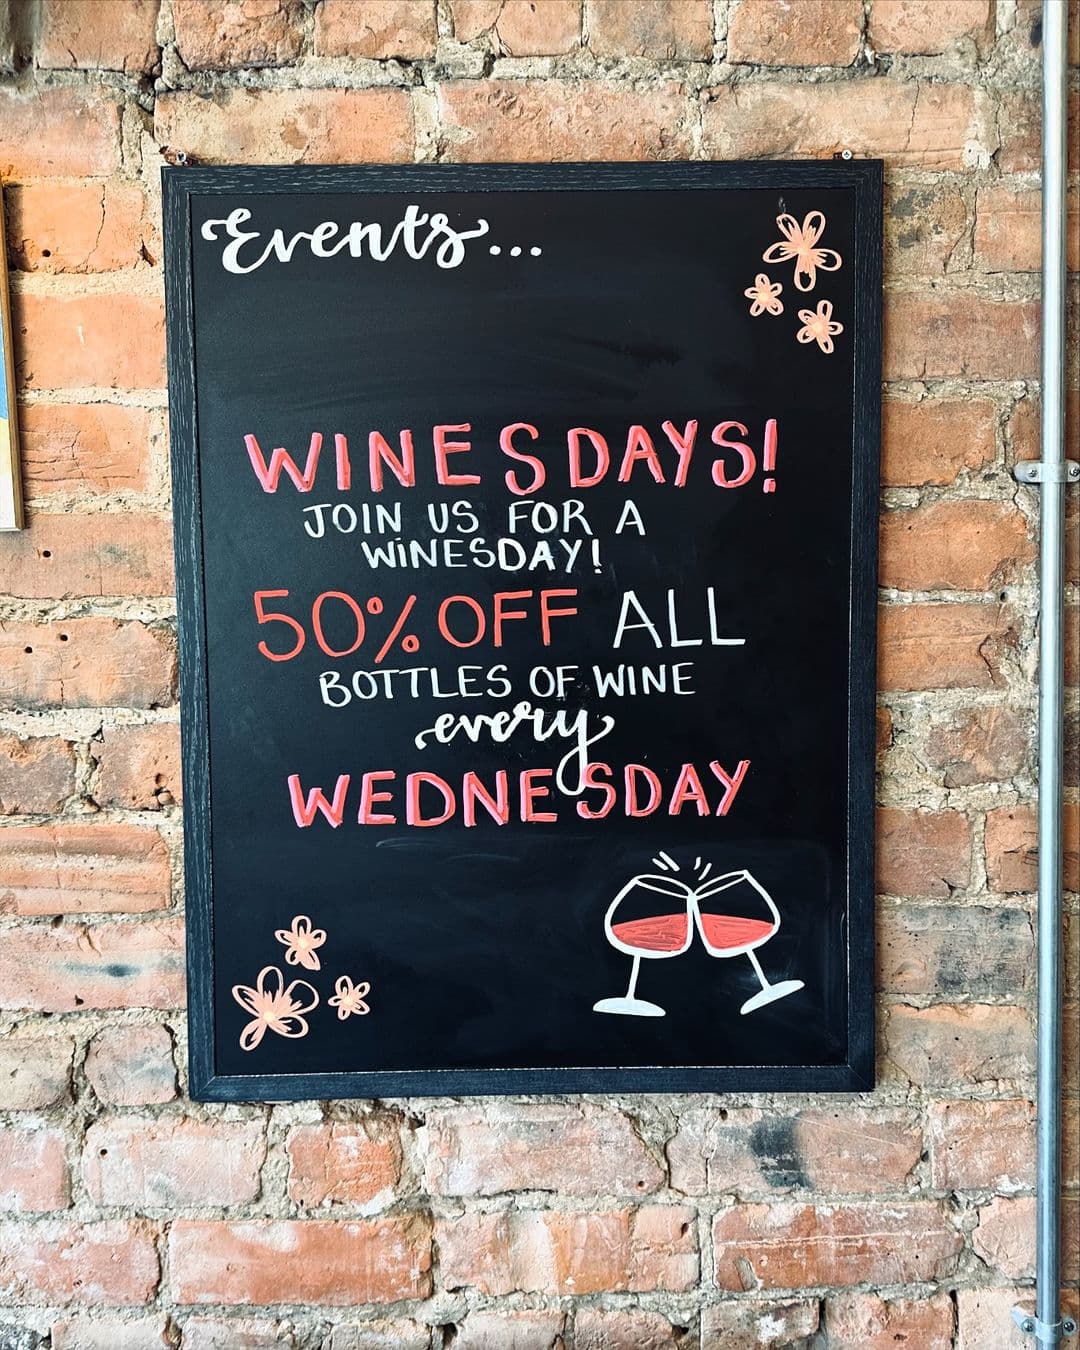 Events...
WINESDAYS!
JOIN US FOR A
WINESDAY!
50% OFF ALL
BOTTLES OF WINE
every
WEDNESDAY